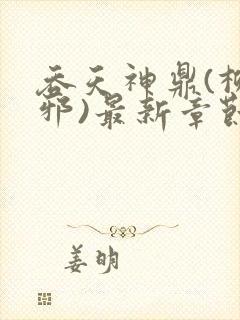 吞天神鼎(柳
邪)最新章節
姜明